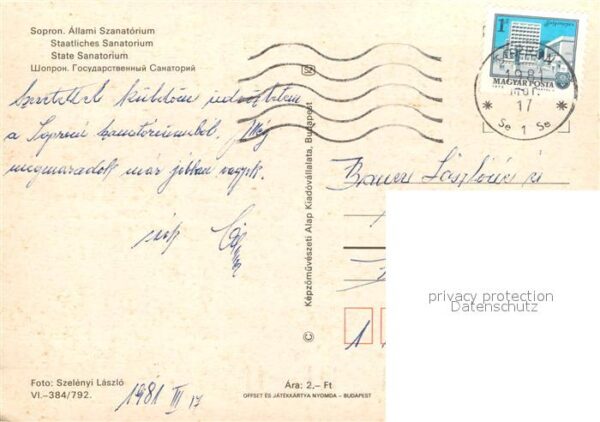 Sopron. Állami Szanatórium
Staatliches Sanatorium
State Sanatorium
Шопрон. Государственный Санаторий
Szeretettel küldöm üdvözletem
a Soproni szanatóriumból. Még
megmaradok már jobban vagyok.
sok
1Ft
MAGYAR POSTA
1981
17
Se 1 Se
Képzőművészeti Alap Kiadóvállalata, Budapest
László
privacy protection
Datenschutz
1
Foto: Szelényi László
VI.–384/792.
1981 III 17
Ára: 2.– Ft
OFFSET ÉS JÁTÉKKÁRTYA NYOMDA – BUDAPEST